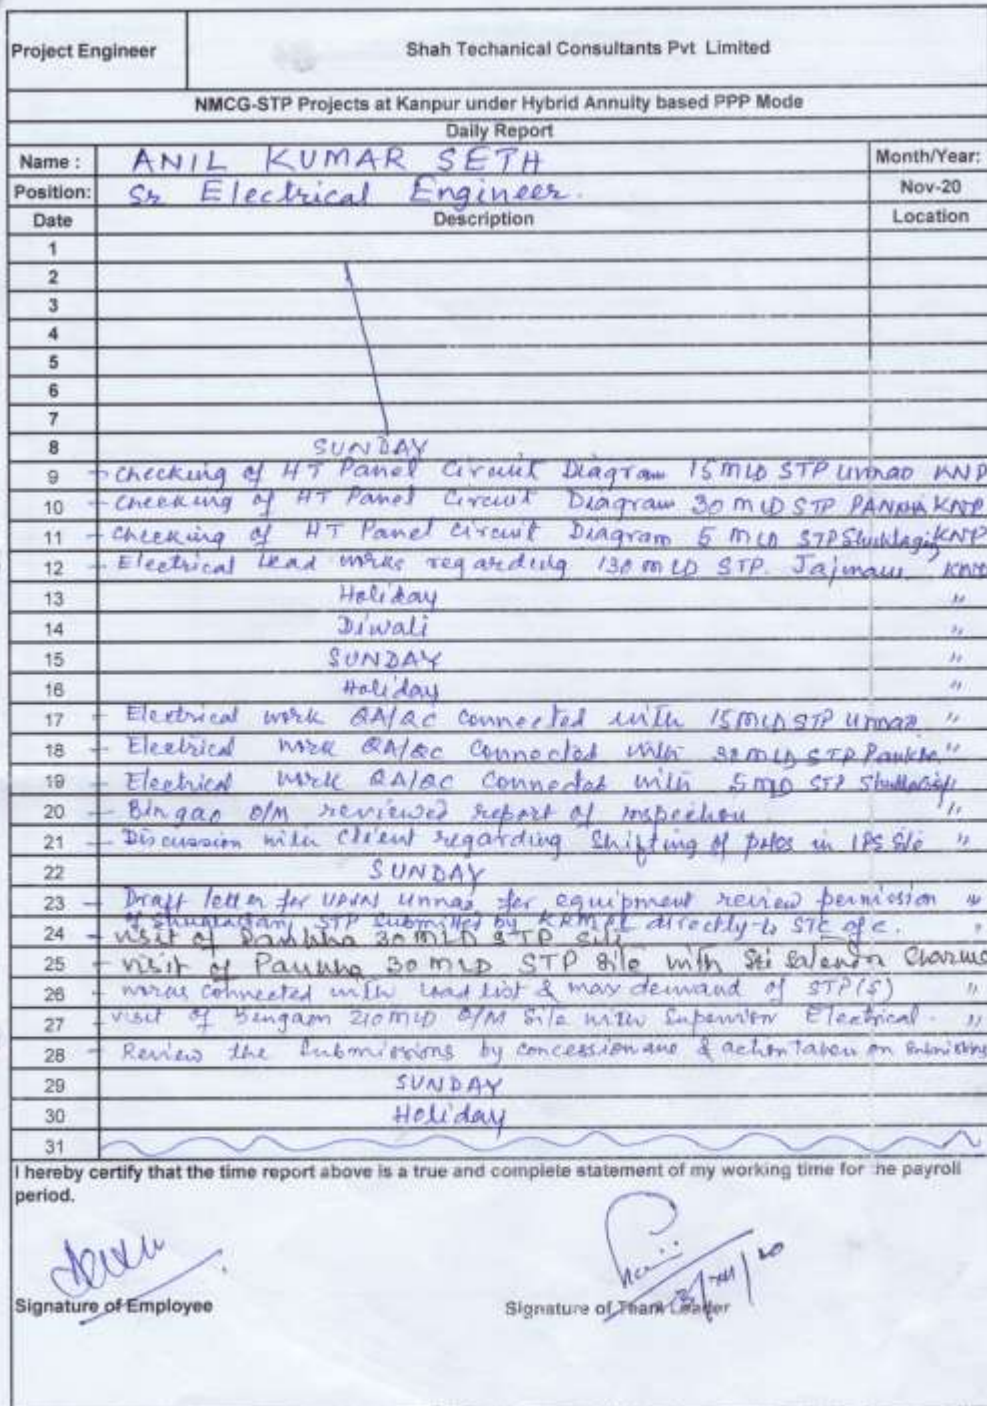 Project Engineer Shah Techanical Consultants Pvt Limited
NMCG-STP Projects at Kanpur under Hybrid Annuity based PPP Mode
Daily Report
Name : ANIL KUMAR SETH Month/Year:
Position: Sr Electrical Engineer. Nov-20
Date Description Location
1
2
3
4
5
6
7
8 SUNDAY
9 - checking of HT Panel Circuit Diagram 15 MLD STP Unnao KNP
10 - checking of HT Panel Circuit Diagram 30 MLD STP PANKHA KNP
11 - checking of HT Panel Circuit Diagram 5 MLD STP Shuklaganj KNP
12 - Electrical Load works regarding 130 MLD STP. Jajmau KNP
13 Holiday "
14 Diwali "
15 SUNDAY "
16 Holiday "
17 - Electrical work QA/QC connected with 15 MLD STP Unnao "
18 - Electrical work QA/QC connected with 30 MLD STP Pankha "
19 - Electrical work QA/QC connected with 5 MLD STP Shuklaganj
20 - Bingao O/M reviewed report of inspection "
21 - Discussion with client regarding Shifting of in IPS Site "
22 SUNDAY
23 - Draft letter for Unnao for equipment review permission "
of Shuklaganj STP submitted by KRMPL directly to STC ofc.
24 - visit of Pankha 30 MLD STP Site "
25 - visit of Pankha 30 MLD STP Site with Sri
26 - works connected with load list & max demand of STP(S) "
27 - visit of Bingaon 210 MLD O/M Site with Supervisor Electrical. "
28 - Review the Submissions by concessionaire & action taken on
29 SUNDAY
30 Holiday
31
I hereby certify that the time report above is a true and complete statement of my working time for he payroll
period.
Signature of Employee Signature of Team Leader